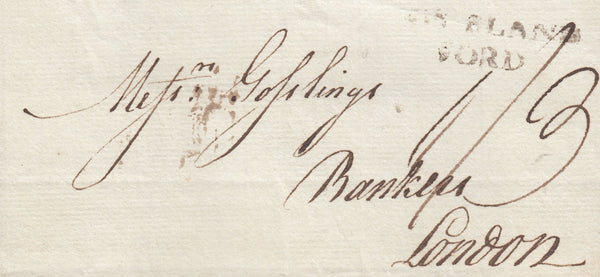 BLAND
FORD
Messrs. Goslings
1/3
Bankers
London